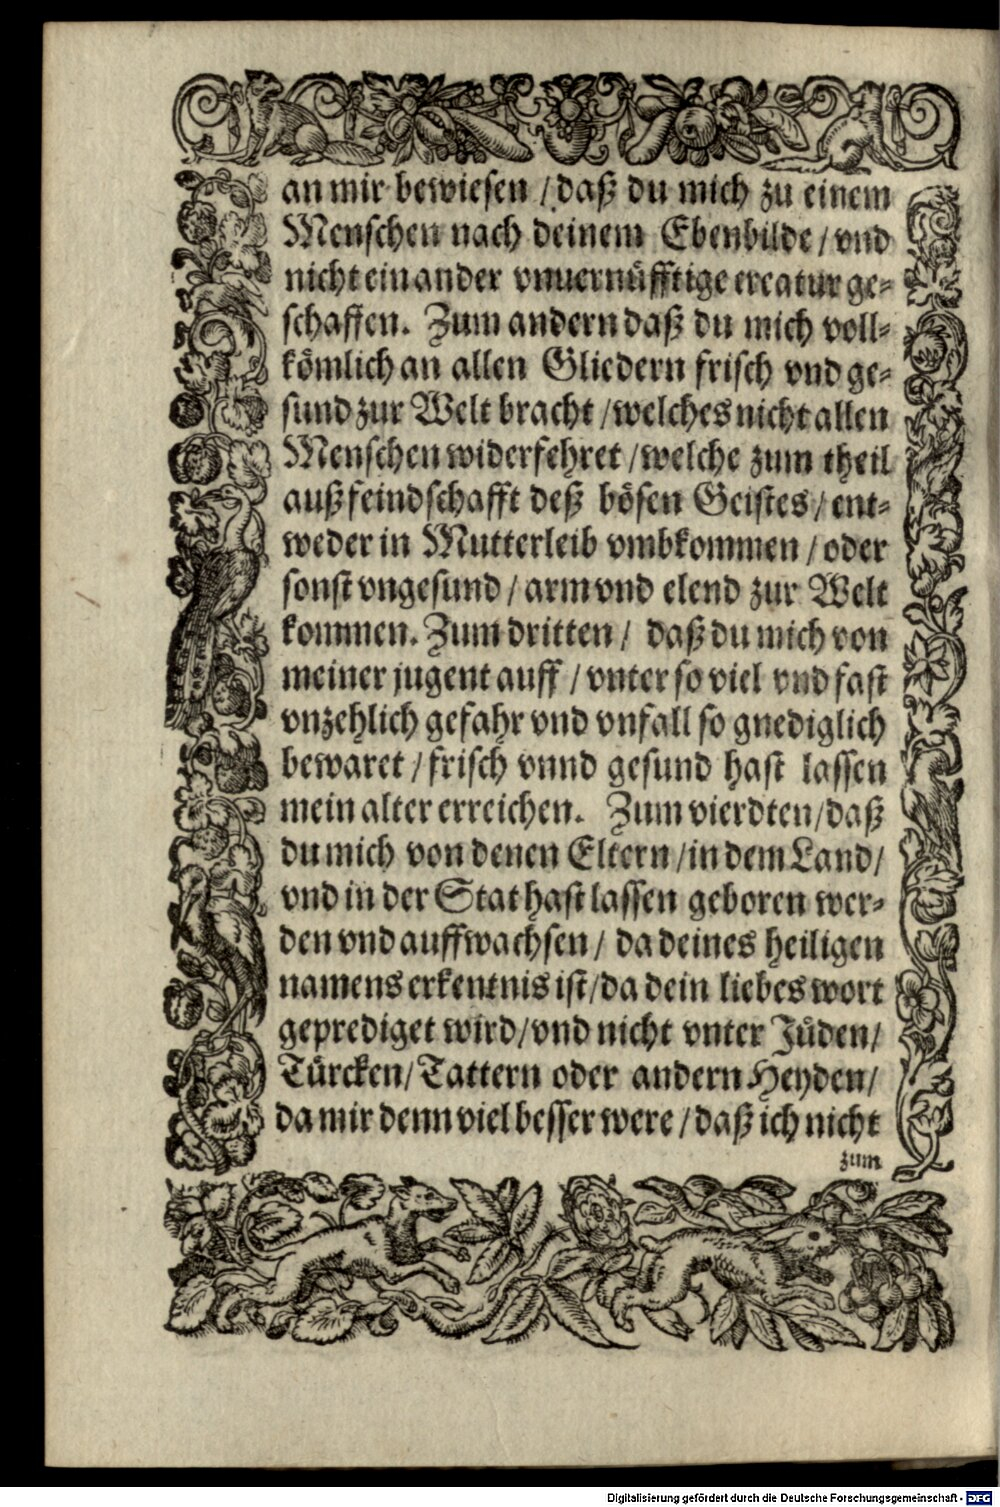 an mir bewiesen / daß du mich zu einem
Menschen nach deinem Ebenbilde / vnd
nicht ein ander vnuernüfftige creatur ge-
schaffen. Zum andern daß du mich voll-
kömlich an allen Gliedern frisch vnd ge-
sund zur Welt bracht / welches nicht allen
Menschen widerfehret / welche zum theil
auß feindschafft deß bösen Geistes / ent-
weder in Mutterleib vmbkommen / oder
sonst vngesund / arm vnd elend zur Welt
kommen. Zum dritten / daß du mich von
meiner jugent auff / vnter so viel vnd fast
vnzehlich gefahr vnd vnfall so gnediglich
bewaret / frisch vnnd gesund hast lassen
mein alter erreichen. Zum vierdten / daß
du mich von denen Eltern / in dem Land /
vnd in der Stat hast lassen geboren wer-
den vnd auffwachsen / da deines heiligen
namens erkentnis ist / da dein liebes wort
geprediget wird / vnd nicht vnter Jüden /
Türcken / Tattern oder andern Heyden /
da mir denn viel besser were / daß ich nicht
zum
Digitalisierung gefördert durch die Deutsche Forschungsgemeinschaft - DFG